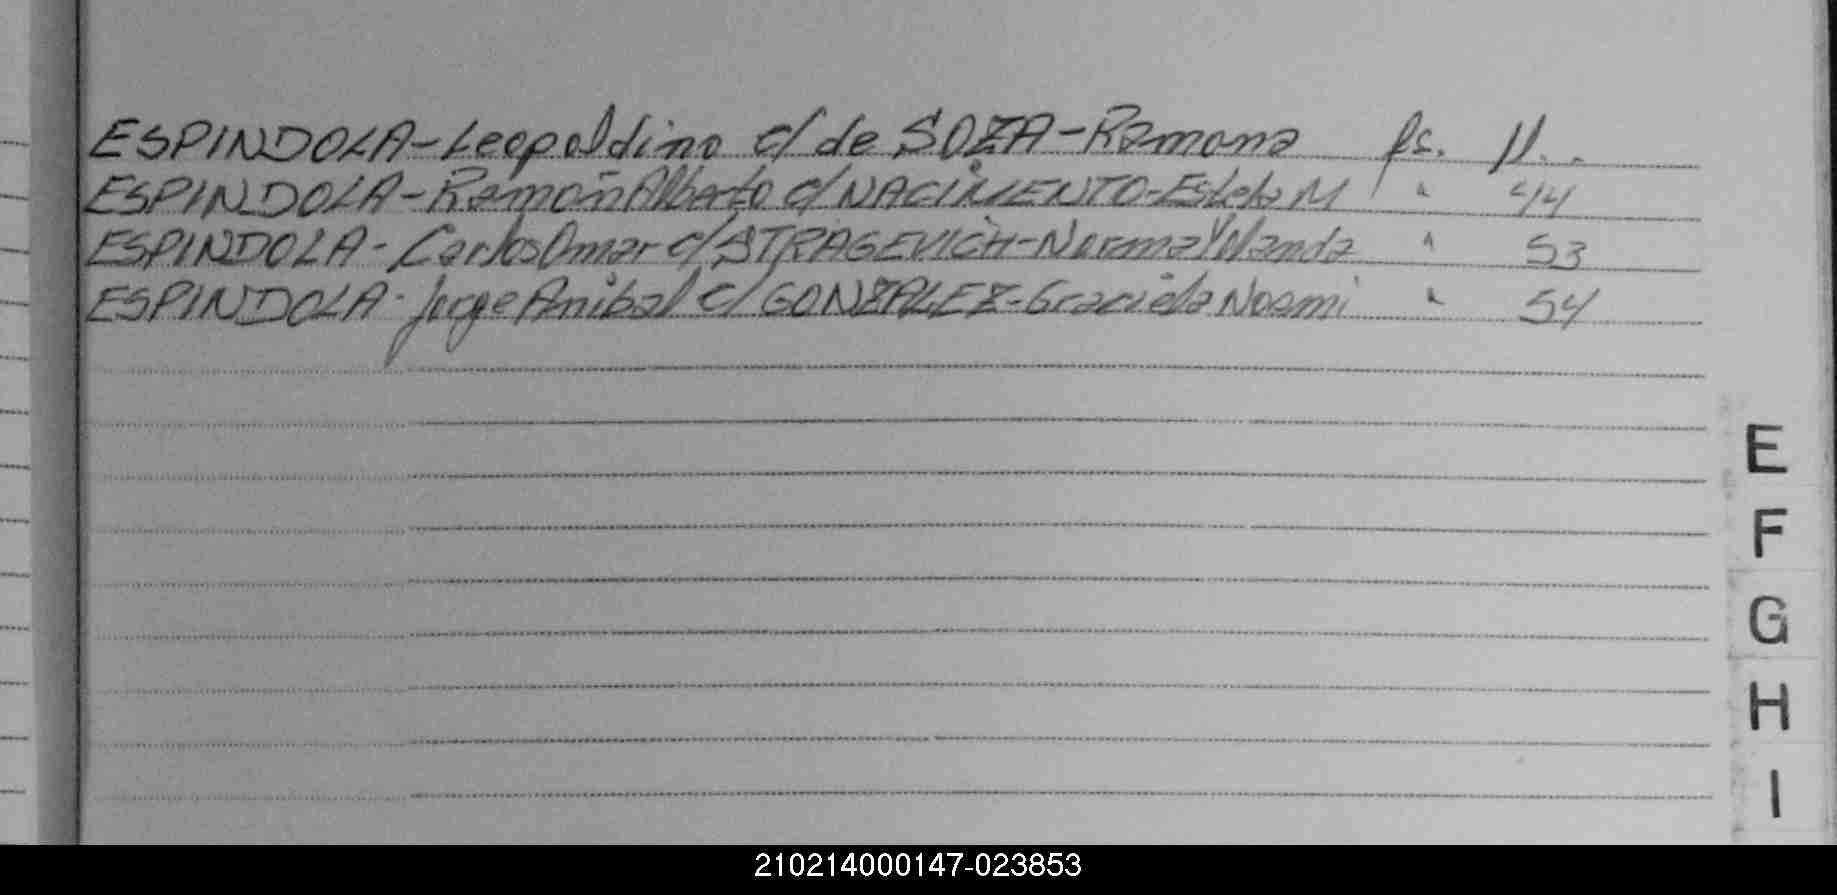 ESPINDOLA-Leopoldino c/ de SOZA-Ramona fs. 11..
ESPINDOLA-Ramón Alberto c/ NACIMIENTO-Estela M " 44
ESPINDOLA- Carlos Omar c/ STRAGEVICH-Norma Wanda " 53
ESPINDOLA- Jorge Anibal c/ GONZALEZ-Graciela Noemi " 54
E
F
G
H
I
210214000147-023853